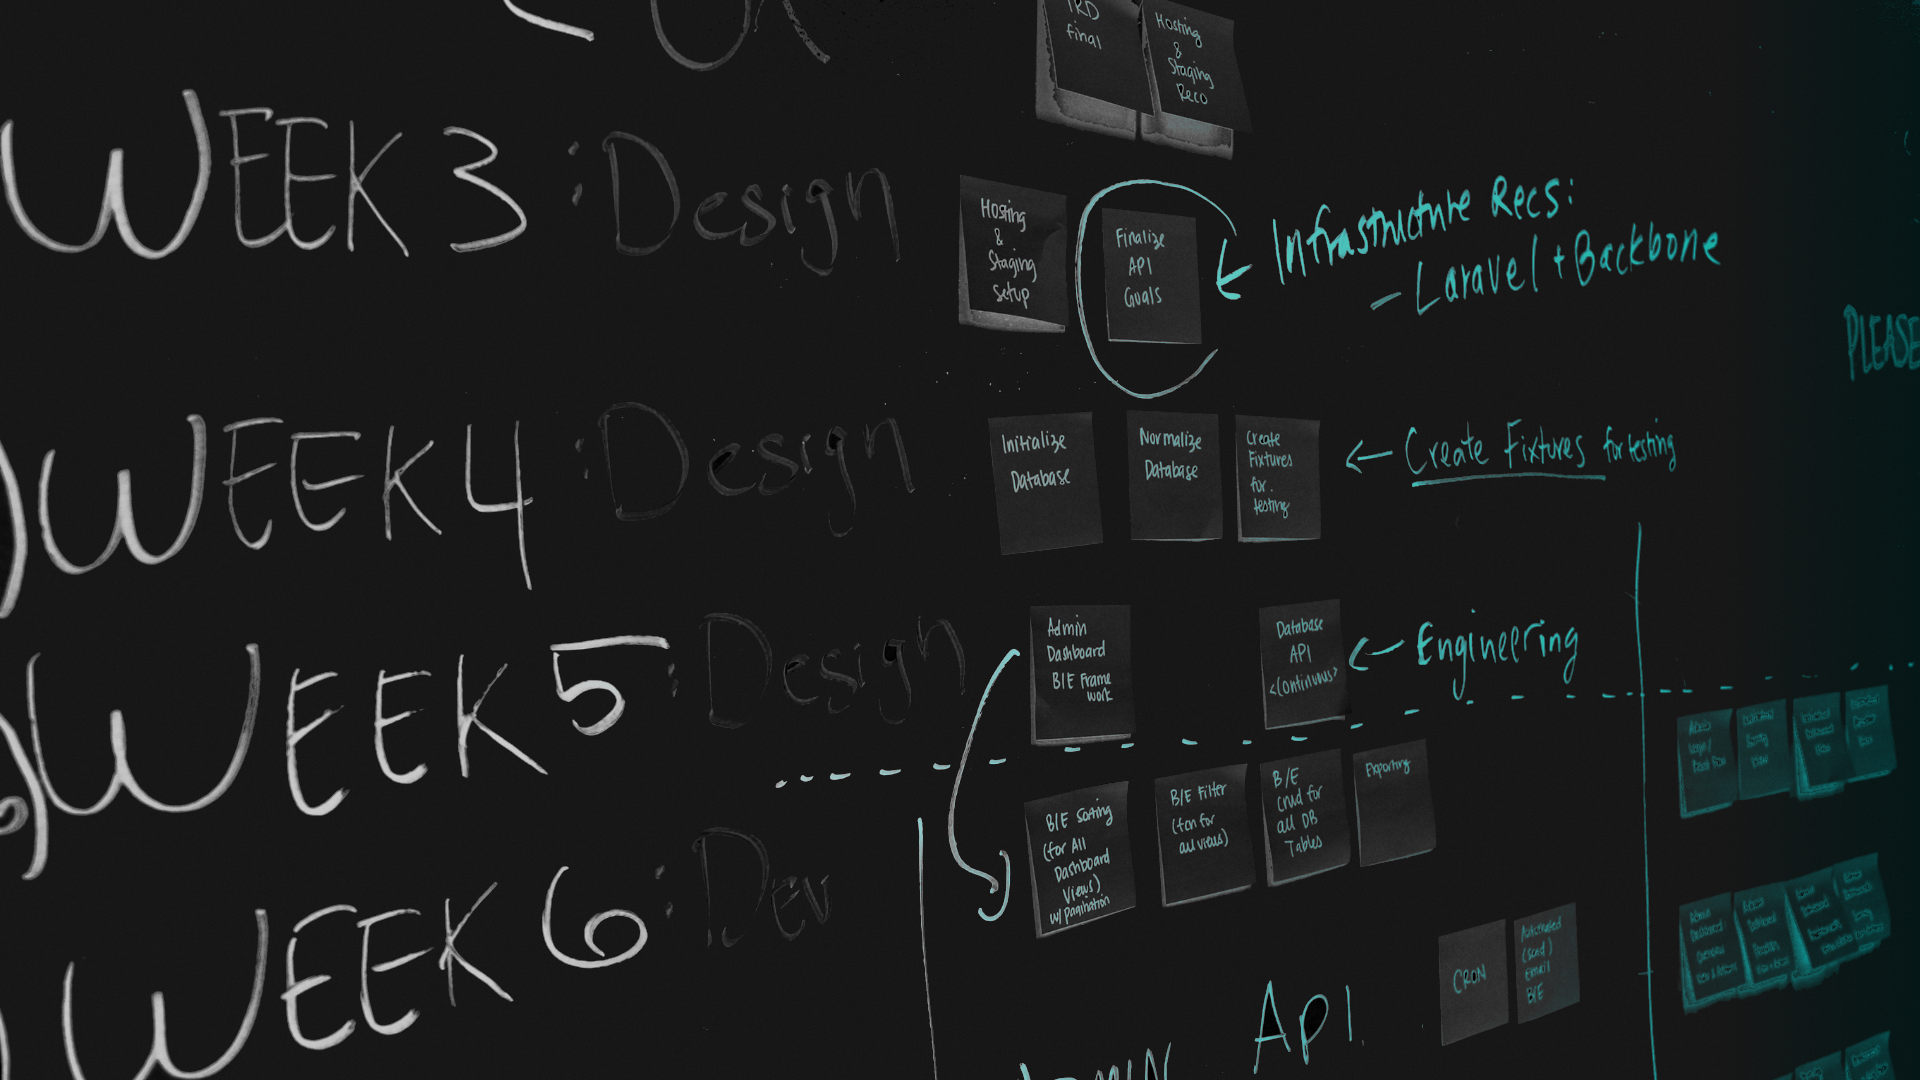 TRD
final
Hosting
&
Staging
Reco
WEEK 3 : Design
Hosting
&
Staging
Setup
Finalize
API
Goals
← Infrastructure Recs:
– Laravel + Backbone
PLEASE
WEEK 4 : Design
Initialize
Database
Normalize
Database
Create
Fixtures
for
testing
← Create Fixtures for testing
WEEK 5 : Design
Admin
Dashboard
B/E Frame
work
Database
API
<Continuous>
← Engineering
B/E Sorting
(for All
Dashboard
Views)
w/ pagination
B/E Filter
(fcn for
all views)
B/E
Crud for
all DB
Tables
Exporting
WEEK 6 : Dev
CRON
Automated
(send)
Email
B/E
API